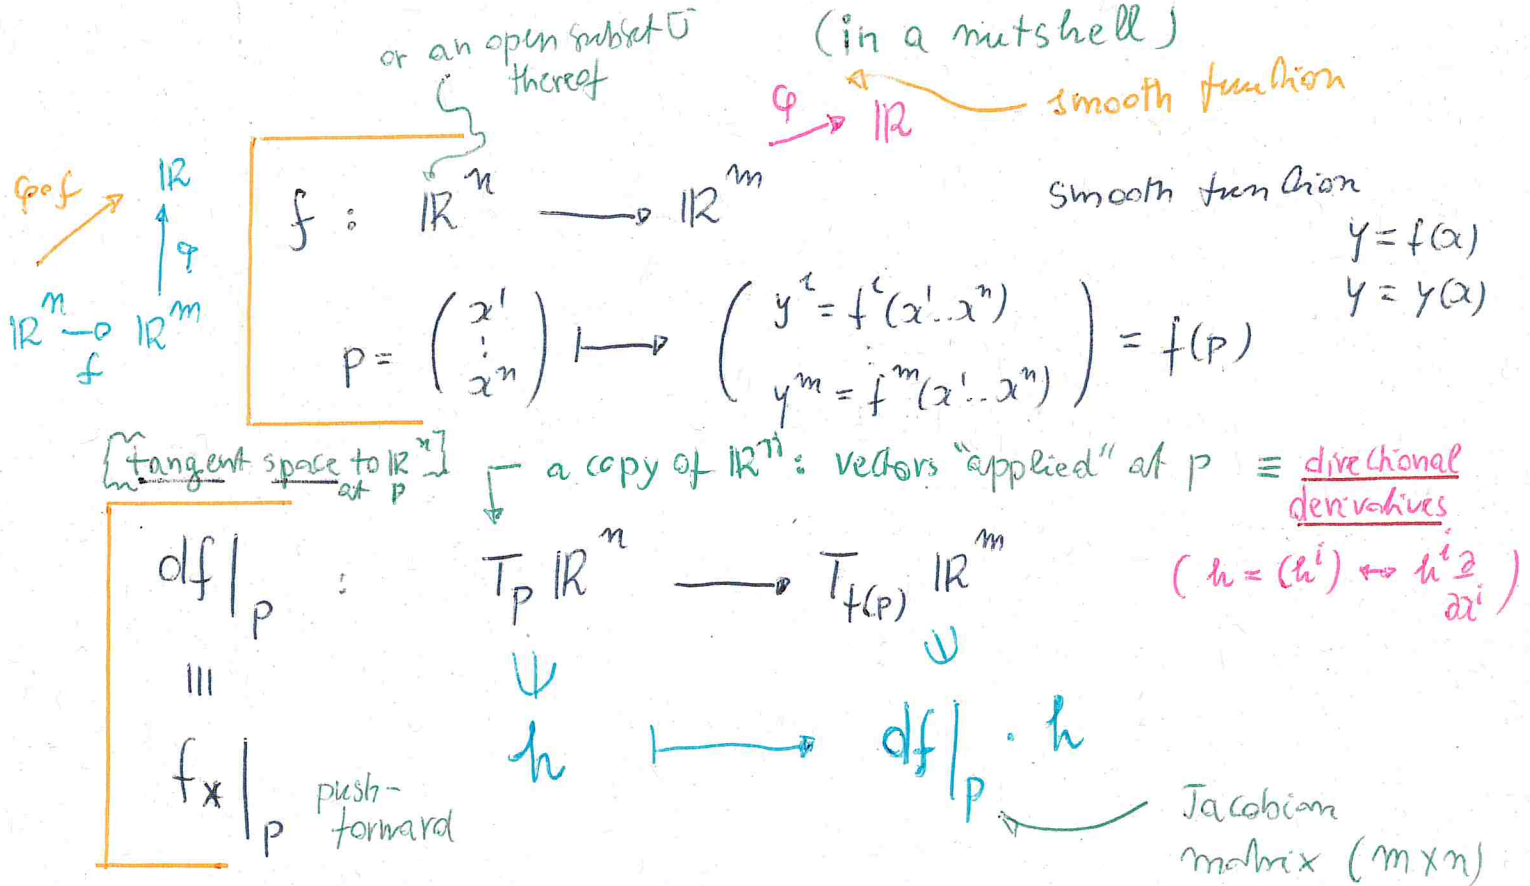 or an open subset U
thereof
(in a nutshell)
smooth function
φ
ℝ
φ∘f
ℝ
φ
ℝⁿ → ℝᵐ
f
f : ℝⁿ → ℝᵐ
smooth function
y = f(x)
y = y(x)
p = (x¹ ⋮ xⁿ) ↦ (yⁱ = fⁱ(x¹..xⁿ) ⋮ yᵐ = fᵐ(x¹..xⁿ)) = f(p)
[tangent space to ℝⁿ]
at p
a copy of ℝⁿ: vectors "applied" at p ≡ directional
derivatives
df|ₚ : Tₚℝⁿ → T_f(p) ℝᵐ
(h = (hⁱ) ↔ hⁱ ∂/∂xⁱ)
≡ ∈ ∈
h ↦ df|ₚ · h
f_*|ₚ
push-
forward
Jacobian
matrix (m×n)